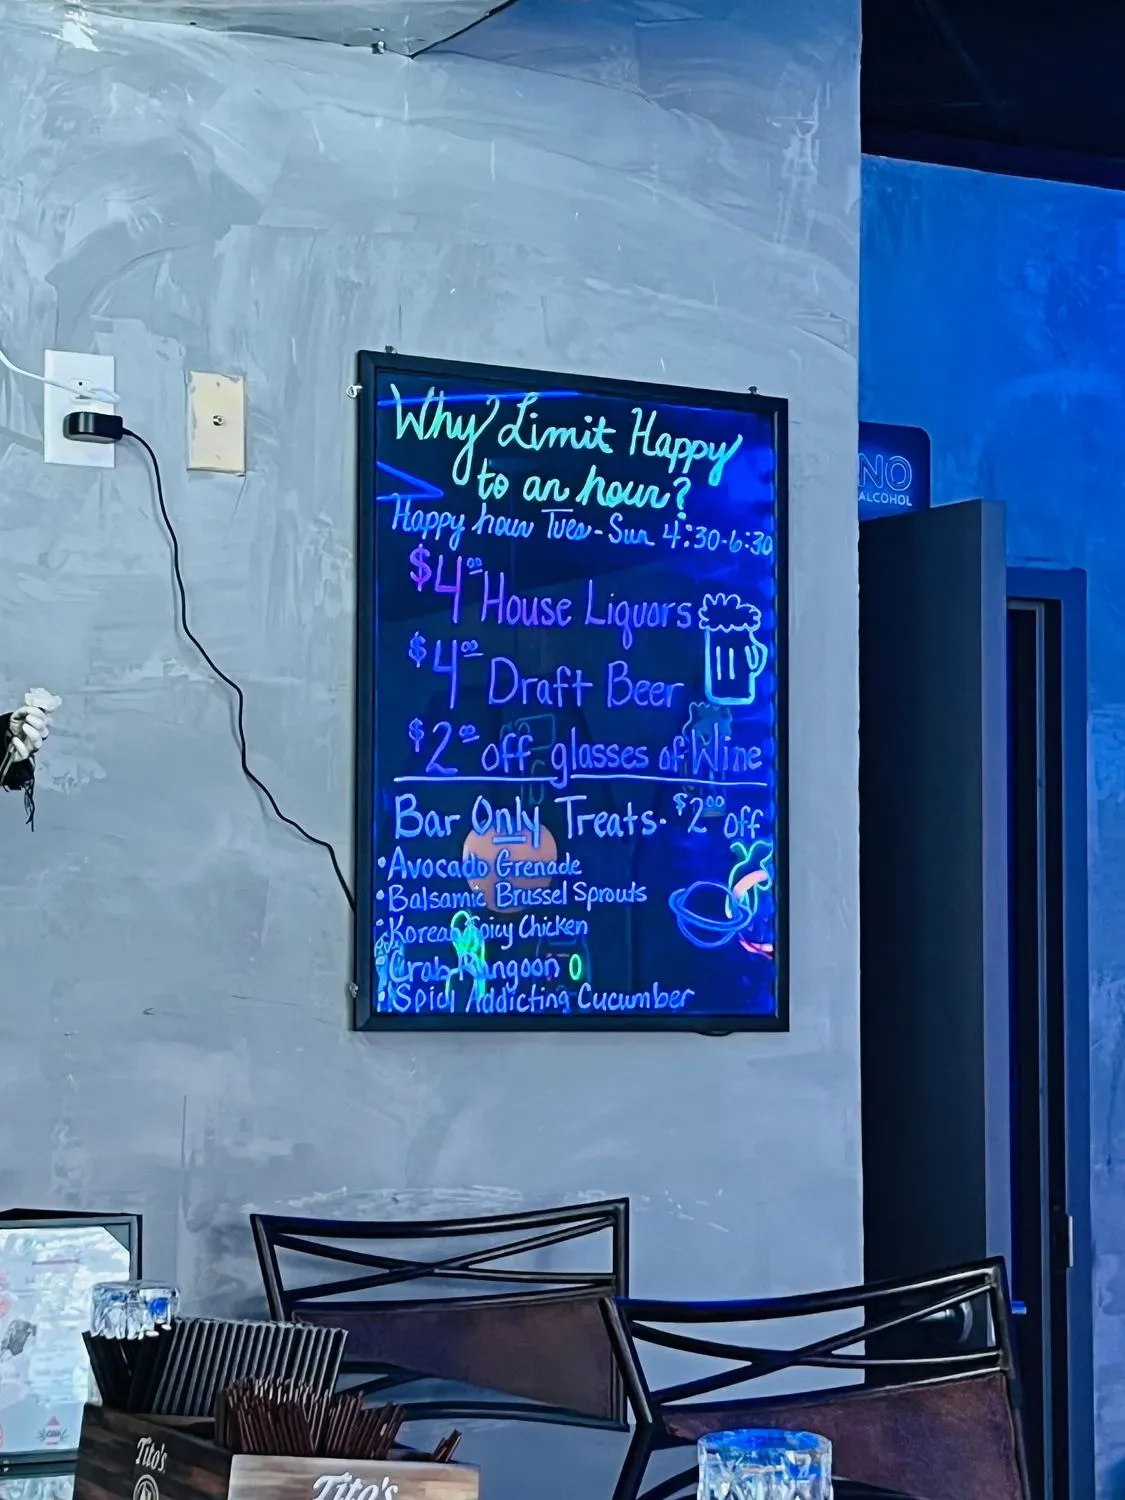 Why Limit Happy
to an hour?
Happy hour Tues-Sun 4:30-6:30
$4.00 House Liquors
$4.00 Draft Beer
$2.00 off glasses of Wine
Bar Only Treats- $2.00 off
•Avocado Grenade
•Balsamic Brussel Sprouts
•Korean Spicy Chicken
•Crab Rangoon
•Spicy Addicting Cucumber
NO
ALCOHOL
Tito's
Tito's